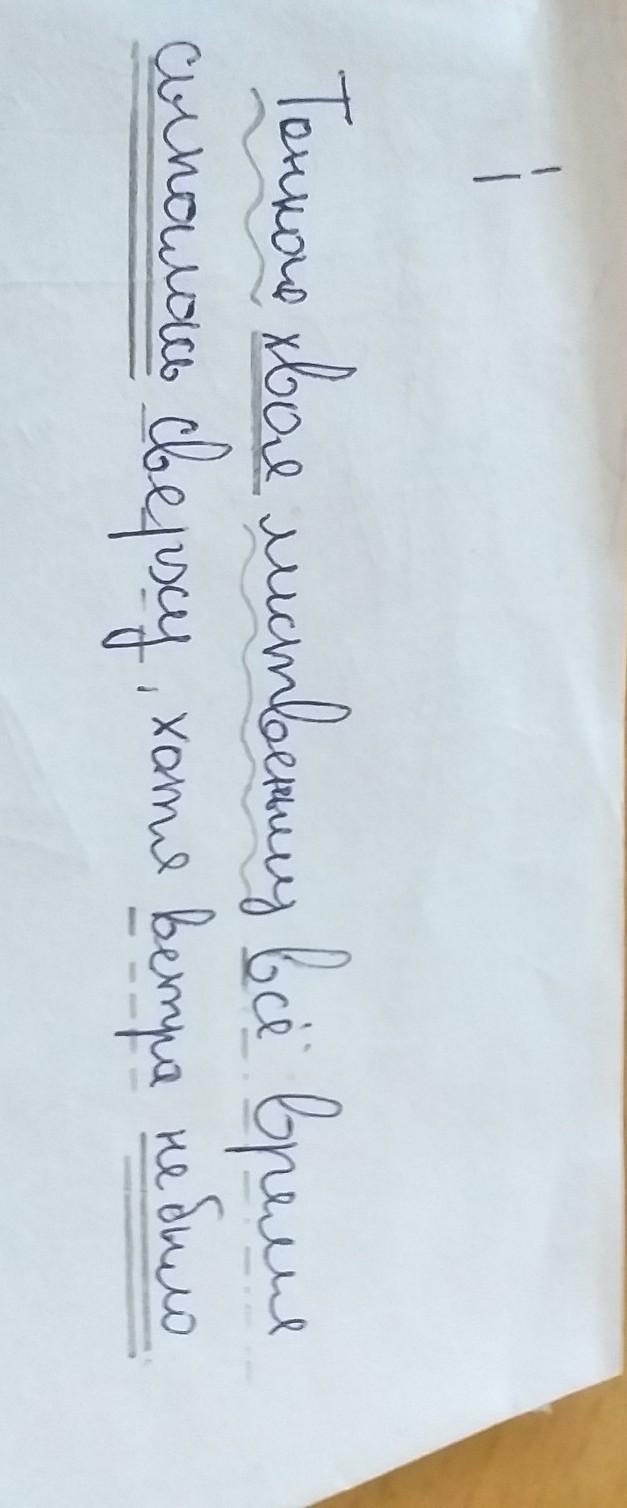 Тонкая хвоя лиственниц всё время
сыпалась сверху, хотя ветра не было